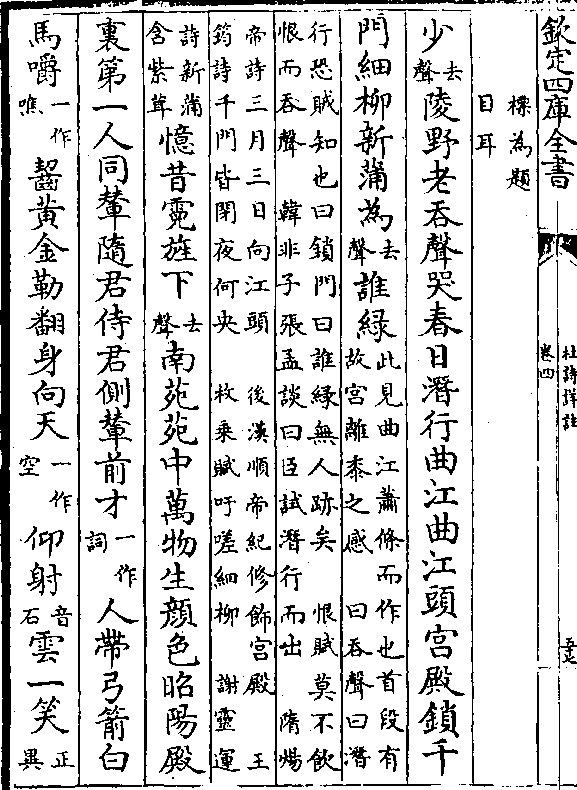 欽定四庫全書
杜詩詳註
卷四
標為題
目耳
少去聲陵野老吞聲哭春日潛行曲江曲江頭宮殿鎖千
門細柳新蒲為去聲誰綠此見曲江蕭條而作也首段有
故宮離黍之感 曰吞聲曰潛
行恐賊知也曰鎖門曰誰綠無人跡矣 恨賦莫不飲
恨而吞聲 韓非子張孟談曰臣試潛行而出 隋煬
帝詩三月三日向江頭 後漢順帝紀修飾宮殿 王
筠詩千門皆閉夜何央 枚乘賦吁嗟細柳 謝靈運
詩新蒲
含紫茸憶昔霓旌下去聲南苑苑中萬物生顏色昭陽殿
裏第一人同輦隨君侍君側輦前才一作詞人帶弓箭白
馬嚼一作噍齧黃金勒翻身向天一作空仰射音石雲一笑正異